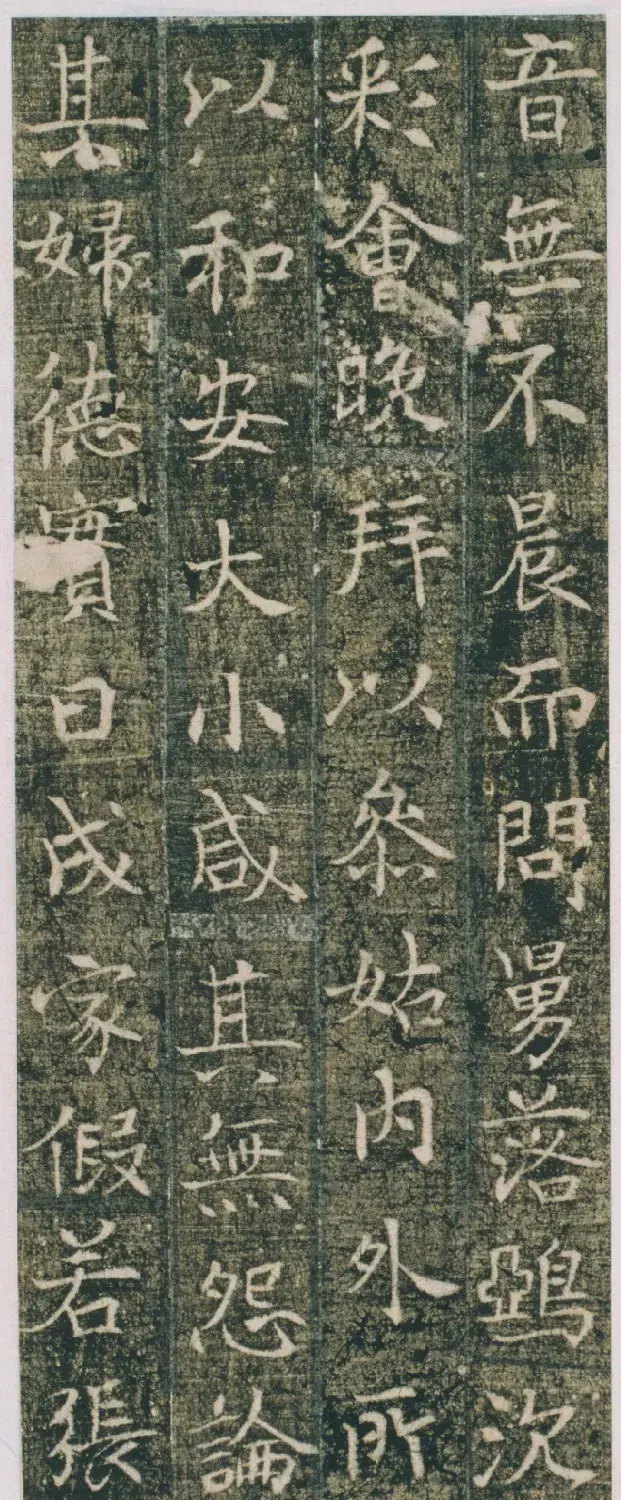 音無不晨而問舅落鵶次
彩會晚拜以叅姑內外所
以和安大小咸其無怨論
其婦德實曰成家假若張